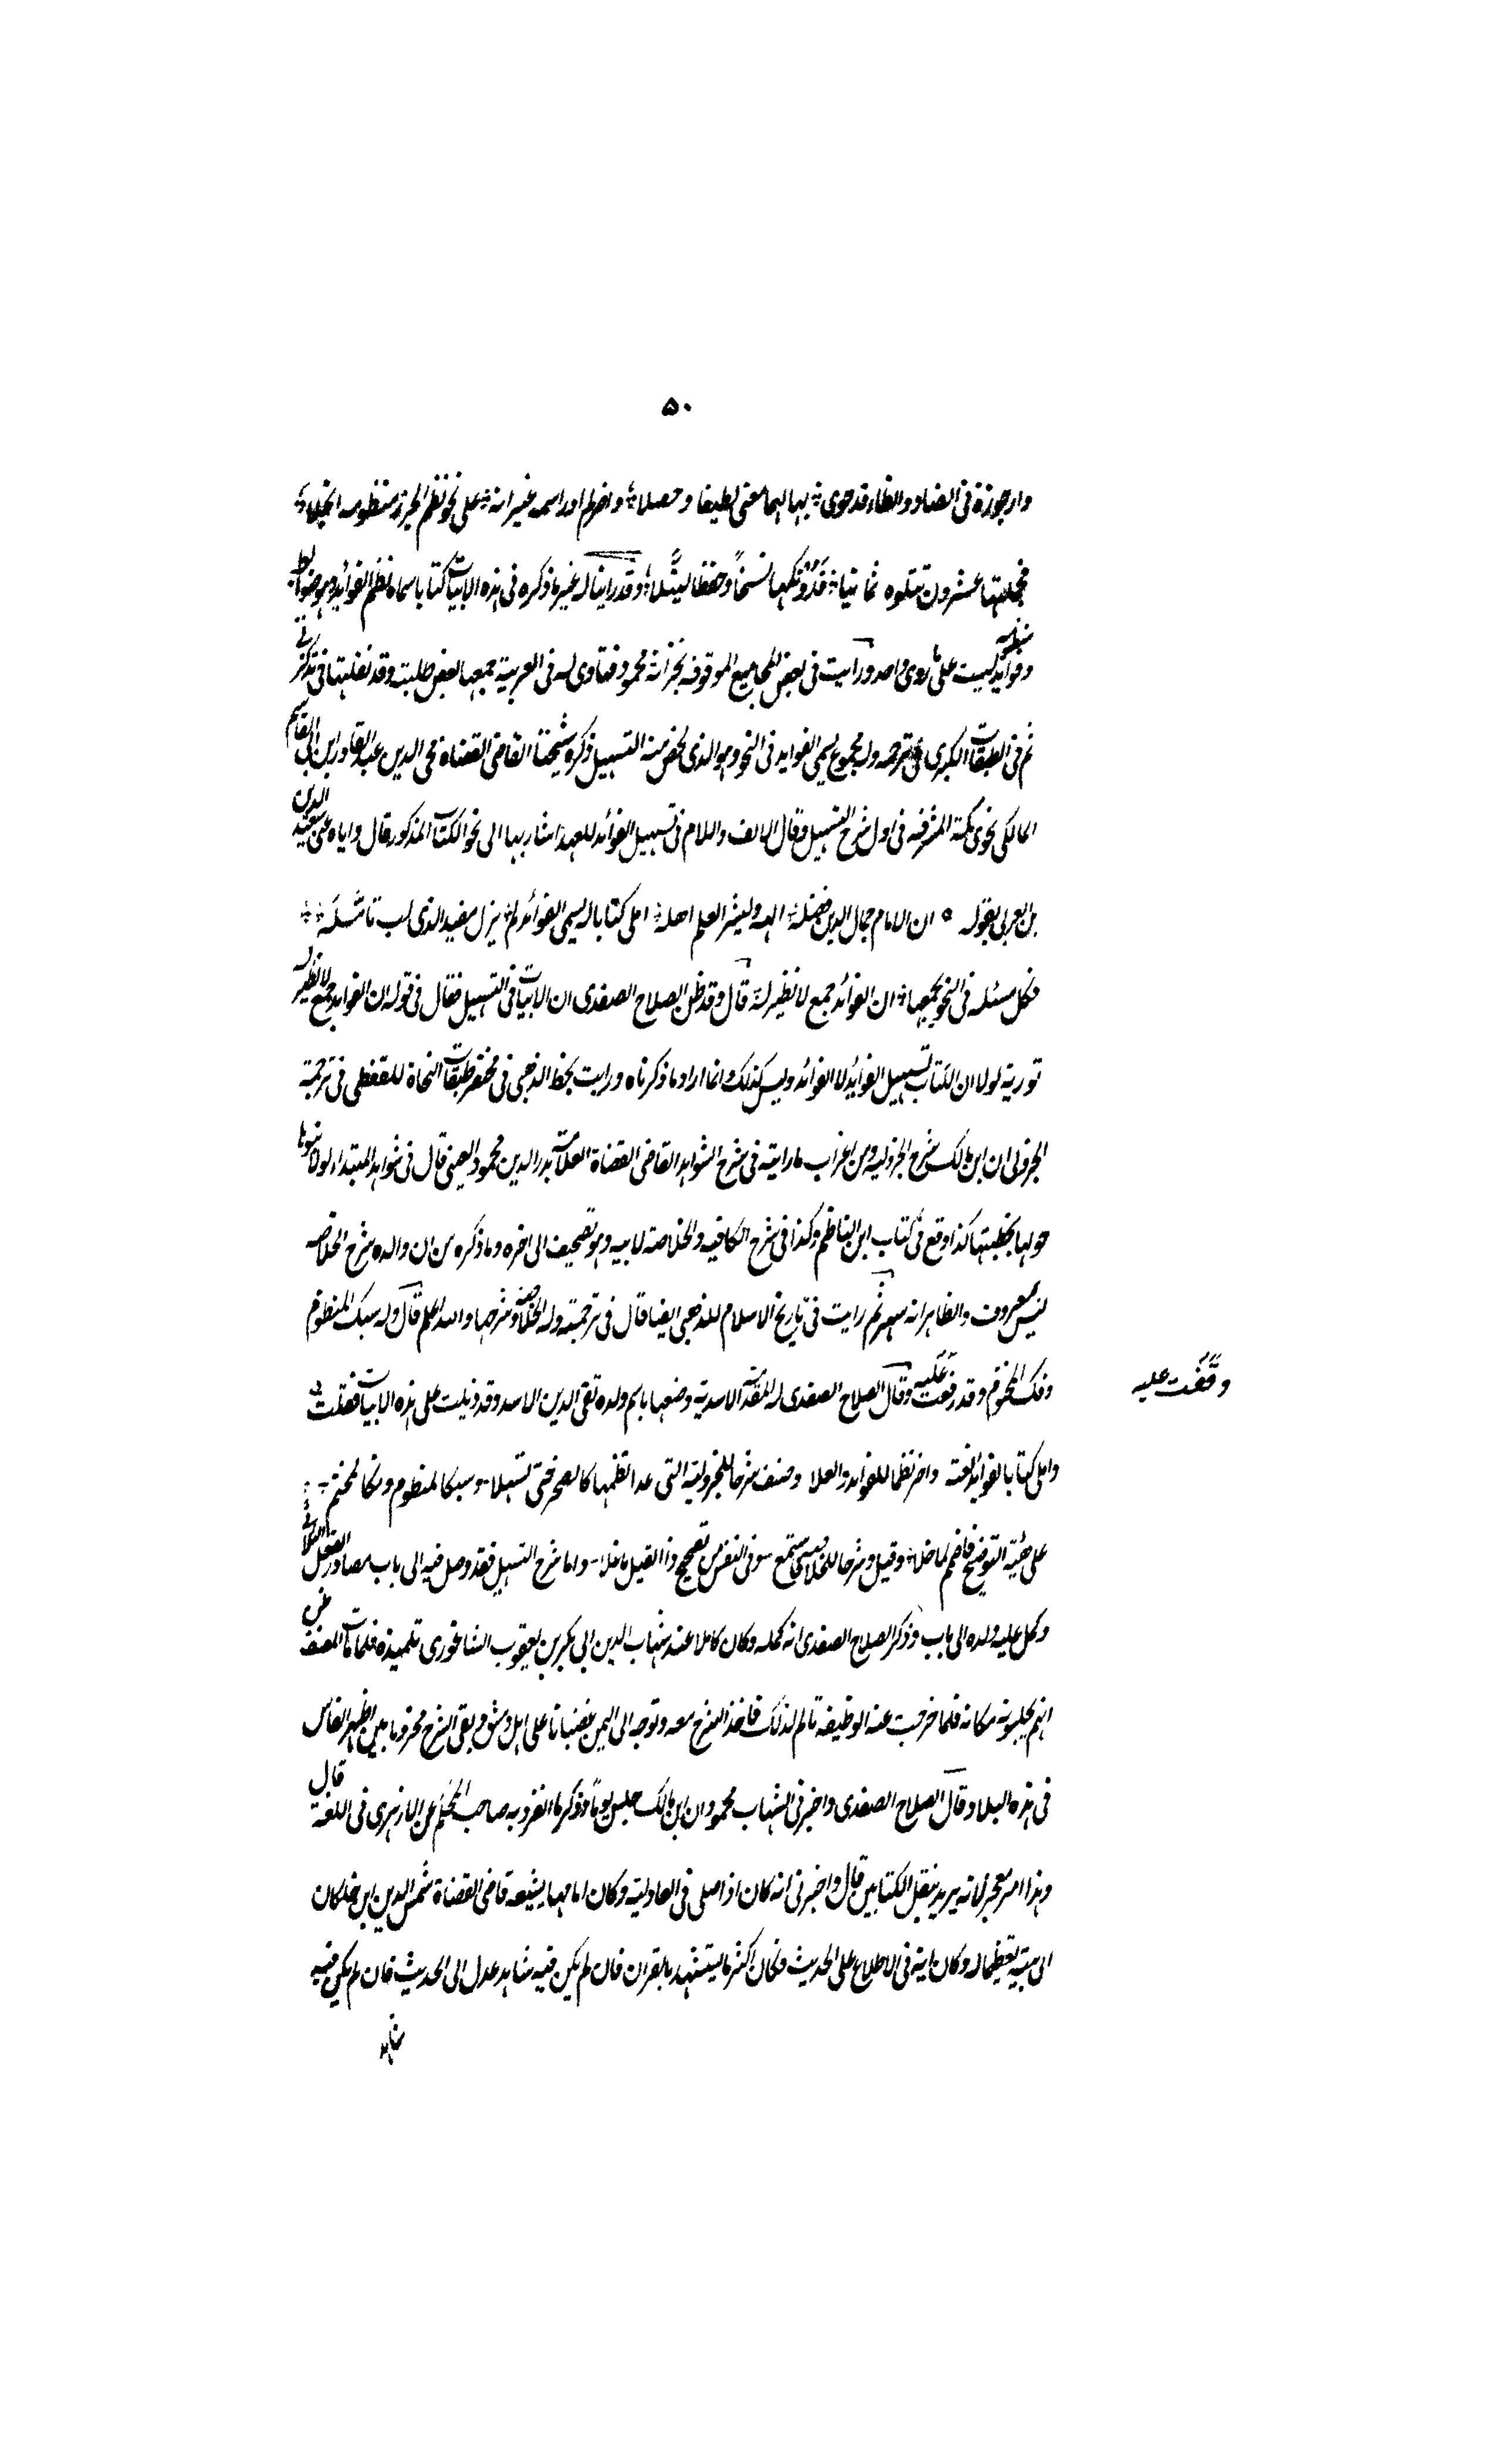 ۵۰
وارجوزة فى الضاد والظاء قد حوى بها لهما معنى لطيفا وحصلا واخر لم اور اسمه غير انه على نحو نظم الحرز منظومه انجلا
فجملتها عشرون تتلوه ثمانيا فدونكها نسخاً وحفظا ليسلا وقد راينا له غير ما ذكره فى هذه الابيات كتابا سماه نظم الفوائد وهو ضوابط
وفوائد منظومة ليست على روى واحد ورايت فى بعض المجاميع الموقوفه بخزانة محمود فتاوى له فى العربية جمعها بعض طلبته وقد نقلتها فى تذكرتى
ثم فى الطبقات الكبرى فى ترجمه وله مجموع يسمى الفوايد فى النحو وهو الذى لخص منه التسهيل ذكره شيخنا القاضى القضاة محى الدين عبد القادر ابن ابى القاسم
المالكى نحوى مكة المشرفه فى اول شرح التسهيل وقال الالف واللام فى تسهيل الفوائد للعهد اشار بها الى نحو الكتاب المذكور قال واياه عنى سعد الدين
بن العربى بقوله ان الامام جمال الدين فضله الهه ولينشر العلم اهله املى كتابا له يسمى الفوائد لم يزل مفيدا لذى لب تامله
فكل مسئله فى النحو يجمعها ان الفوائد جمع لا نظير له قال وقد ظن الصلاح الصفدى ان الابيات فى التسهيل فقال فى قوله ان الفوايد جمع لا نظير له
تورية لولا ان الكتاب تسهيل الفوايد لا الفوائد وليس كذلك وانما اراد ما ذكرناه ورايت بخط الذهبى فى مختصر طبقات النحاة للقفطى فى ترجمة
الجزولى ان ابن مالك شرح الجزولية ومن اغراب ما رايته فى شرح الشواهد القاضى القضاة العلامة بدر الدين محمود العينى قال فى شواهد المبتداء لولا بنوها
حولها لخبطتها كذا وقع فى كتاب ابن الناظم وكذا فى شرح الكافيه والخلاصة لابيه وهو تصحيف الى اخره وما ذكره من ان والده شرح الخلاصه
ليس معروف والظاهر انه سهو ثم رايت فى تاريخ الاسلام للذهبى ايضا قال فى ترجمته وله الخلاصة وشرحها والله اعلم قال وله سبك المنظوم
وفك المختوم وقد رفعت عليه وقال الصلاح الصفدى له المقدمة الاسدية وضعها باسم ولده تقى الدين الاسد وقد ذيلت على هذه الابيات فقلت
وقفت عليه
واملى كتابا بالفوايد نعته واخر نظما للفوايد والعلا وصنف شرحا للجزولية التى غدا نظمها كالصخر حتى تسهلا وسبكا لمنظوم وفكا لمختم
على هيئة التوضيح فاضمم لما خلا وقيل وشرحا للخلاصة فاستمع سوفى النفس من تصحيح ذا القيل ما خلا واما شرح التسهيل فقد وصل فيه الى باب مصادر الفعل الثلاثى
وكمل عليه ولده الى باب وذكر الصلاح الصفدى انه كمله وكان كاملا عند شهاب الدين ابى بكر بن يعقوب الشافعورى تلميذه فلما مات المصنف ظن
انهم يجلسونه مكانه فلما خرجت عنه الوظيفه تالم لذلك فاخذ الشرح معه وتوجه الى اليمن غضبانا على اهل دمشق وبقى الشرح مخروما بين اظهر الناس
فى هذه البلاد وقال الصلاح الصفدى واخبرنى الشهاب محمود ان ابن مالك جلس يوما وذكر ما انفرد به صاحب المحكم عن الازهرى فى اللغة قال
وهذا امر معجز لانه يريد ينقل الكتابين قال واخبرنى انه كان اذا صلى فى العادلية وكان امامها يشيعه قاضى القضاة شمس الدين ابن خلكان
الى بيته تعظيما له وكان اية فى الاطلاع على الحديث فكان اكثر ما يستشهد بالقران فان لم يكن فيه شاهد عدل الى الحديث فان لم يكن فيه
شاهد